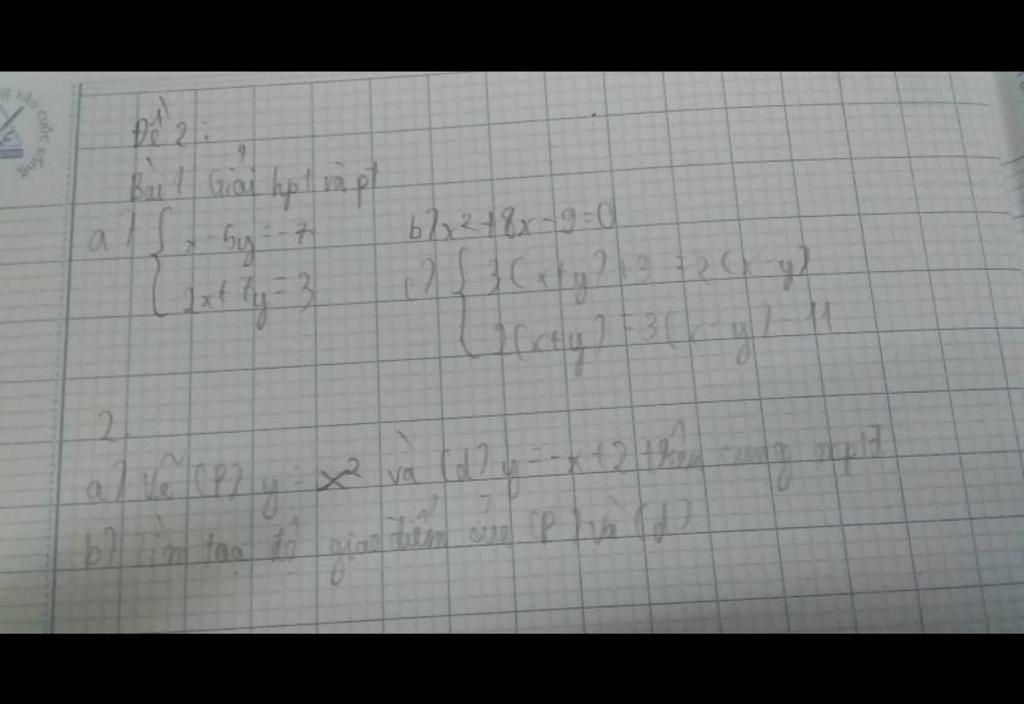 Đề 2:
Bài 1 Giải hpt và pt
a) { x - 5y = -7 b) x² + 8x - 9 = 0
2x + 7y = 3 c) { 3(x + y) + 9 = 2(x - y)
2(x + y) = 3(x - y) - 11
2
a) Vẽ (P) y = x² và (d) y = -x + 2 trên cùng mptđ
b) Tìm tọa độ giao điểm của (P) và (d)
cuộc sống